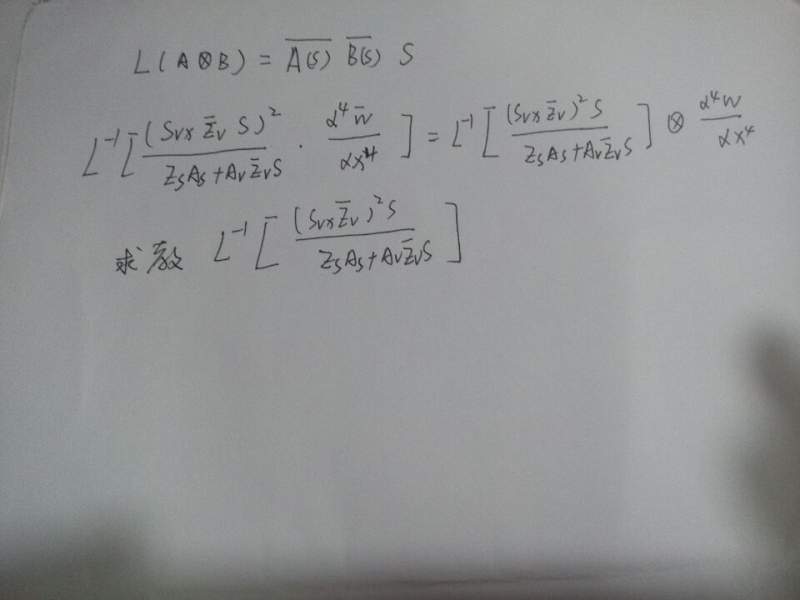 L(A⊗B) = \overline{A(s)} \overline{B(s)} S
L⁻¹[ \frac{(S_{vx} \bar{Z}_v S)^2}{Z_s A_s + A_v \bar{Z}_v S} · \frac{d^4 \bar{w}}{dx^4} ] = L⁻¹[ \frac{(S_{vx} \bar{Z}_v)^2 S}{Z_s A_s + A_v \bar{Z}_v S} ] ⊗ \frac{d^4 w}{dx^4}
求教 L⁻¹[ \frac{(S_{vx} \bar{Z}_v)^2 S}{Z_s A_s + A_v \bar{Z}_v S} ]